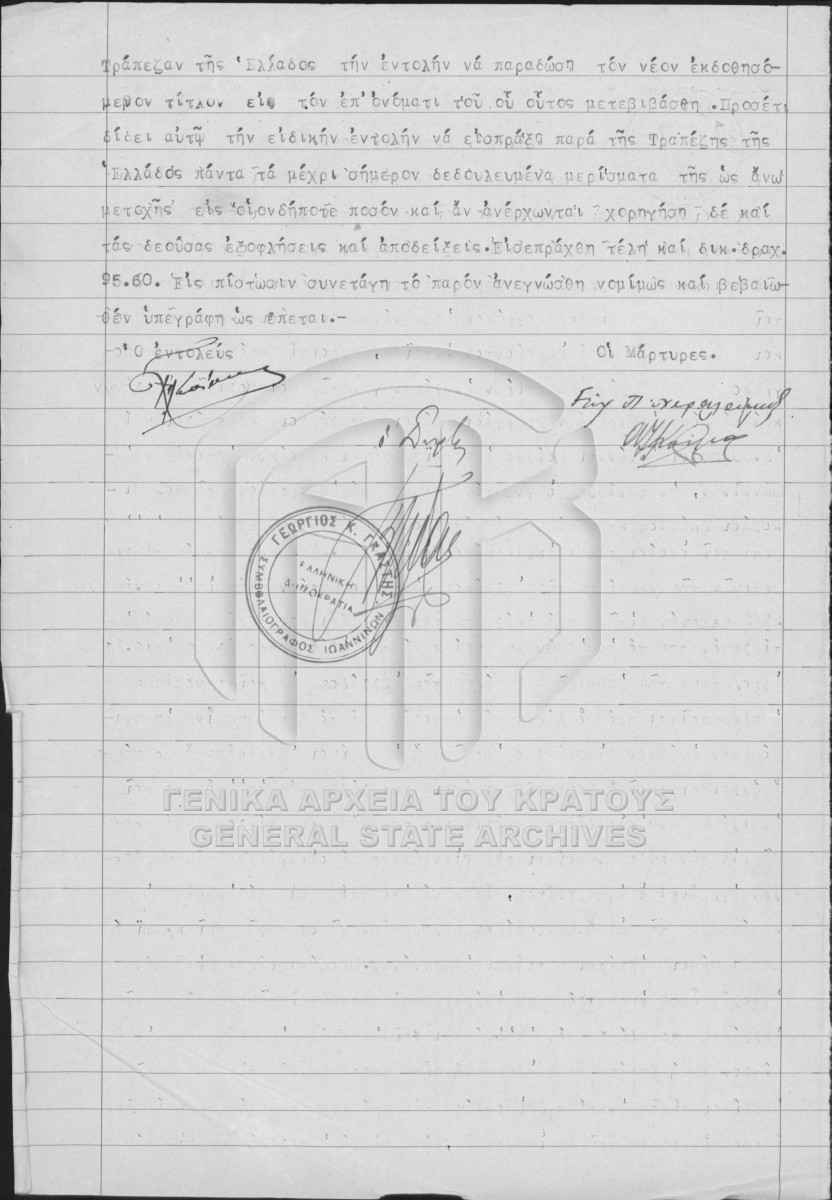 Τράπεζαν τῆς Ἑλλάδος τήν ἐντολήν νά παραδώση τόν νέον ἐκδοθησό-
μενον τίτλον εἰς τόν ἐπ' ὀνόματι τοῦ οὗ οὗτος μετεβιβάσθη. Προσέτι
δίδει αὐτῷ τήν εἰδικήν ἐντολήν νά εἰσπράξη παρά τῆς Τραπέζης τῆς
Ἑλλάδος πάντα τά μέχρι σήμερον δεδουλευμένα μερίσματα τῆς ὡς ἄνω
μετοχῆς εἰς οἱονδήποτε ποσόν καί ἄν ἀνέρχωνται χορηγήση δέ καί
τάς δεούσας ἐξοφλήσεις καί ἀποδείξεις. Εἰσεπράχθη τέλη καί δικ. δραχ.
95.60. Εἰς πίστωσιν συνετάγη τό παρόν ἀνεγνώσθη νομίμως καί βεβαιω-
θέν ὑπεγράφη ὡς ἕπεται.-
Ὁ ἐντολεύς
Οἱ Μάρτυρες.
ΓΕΩΡΓΙΟΣ Κ. ΓΚΑΣΤΗΣ
ΣΥΜΒΟΛΑΙΟΓΡΑΦΟΣ ΙΩΑΝΝΙΝΩΝ
ΕΛΛΗΝΙΚΗ
ΔΗΜΟΚΡΑΤΙΑ
ΓΕΝΙΚΑ ΑΡΧΕΙΑ ΤΟΥ ΚΡΑΤΟΥΣ
GENERAL STATE ARCHIVES